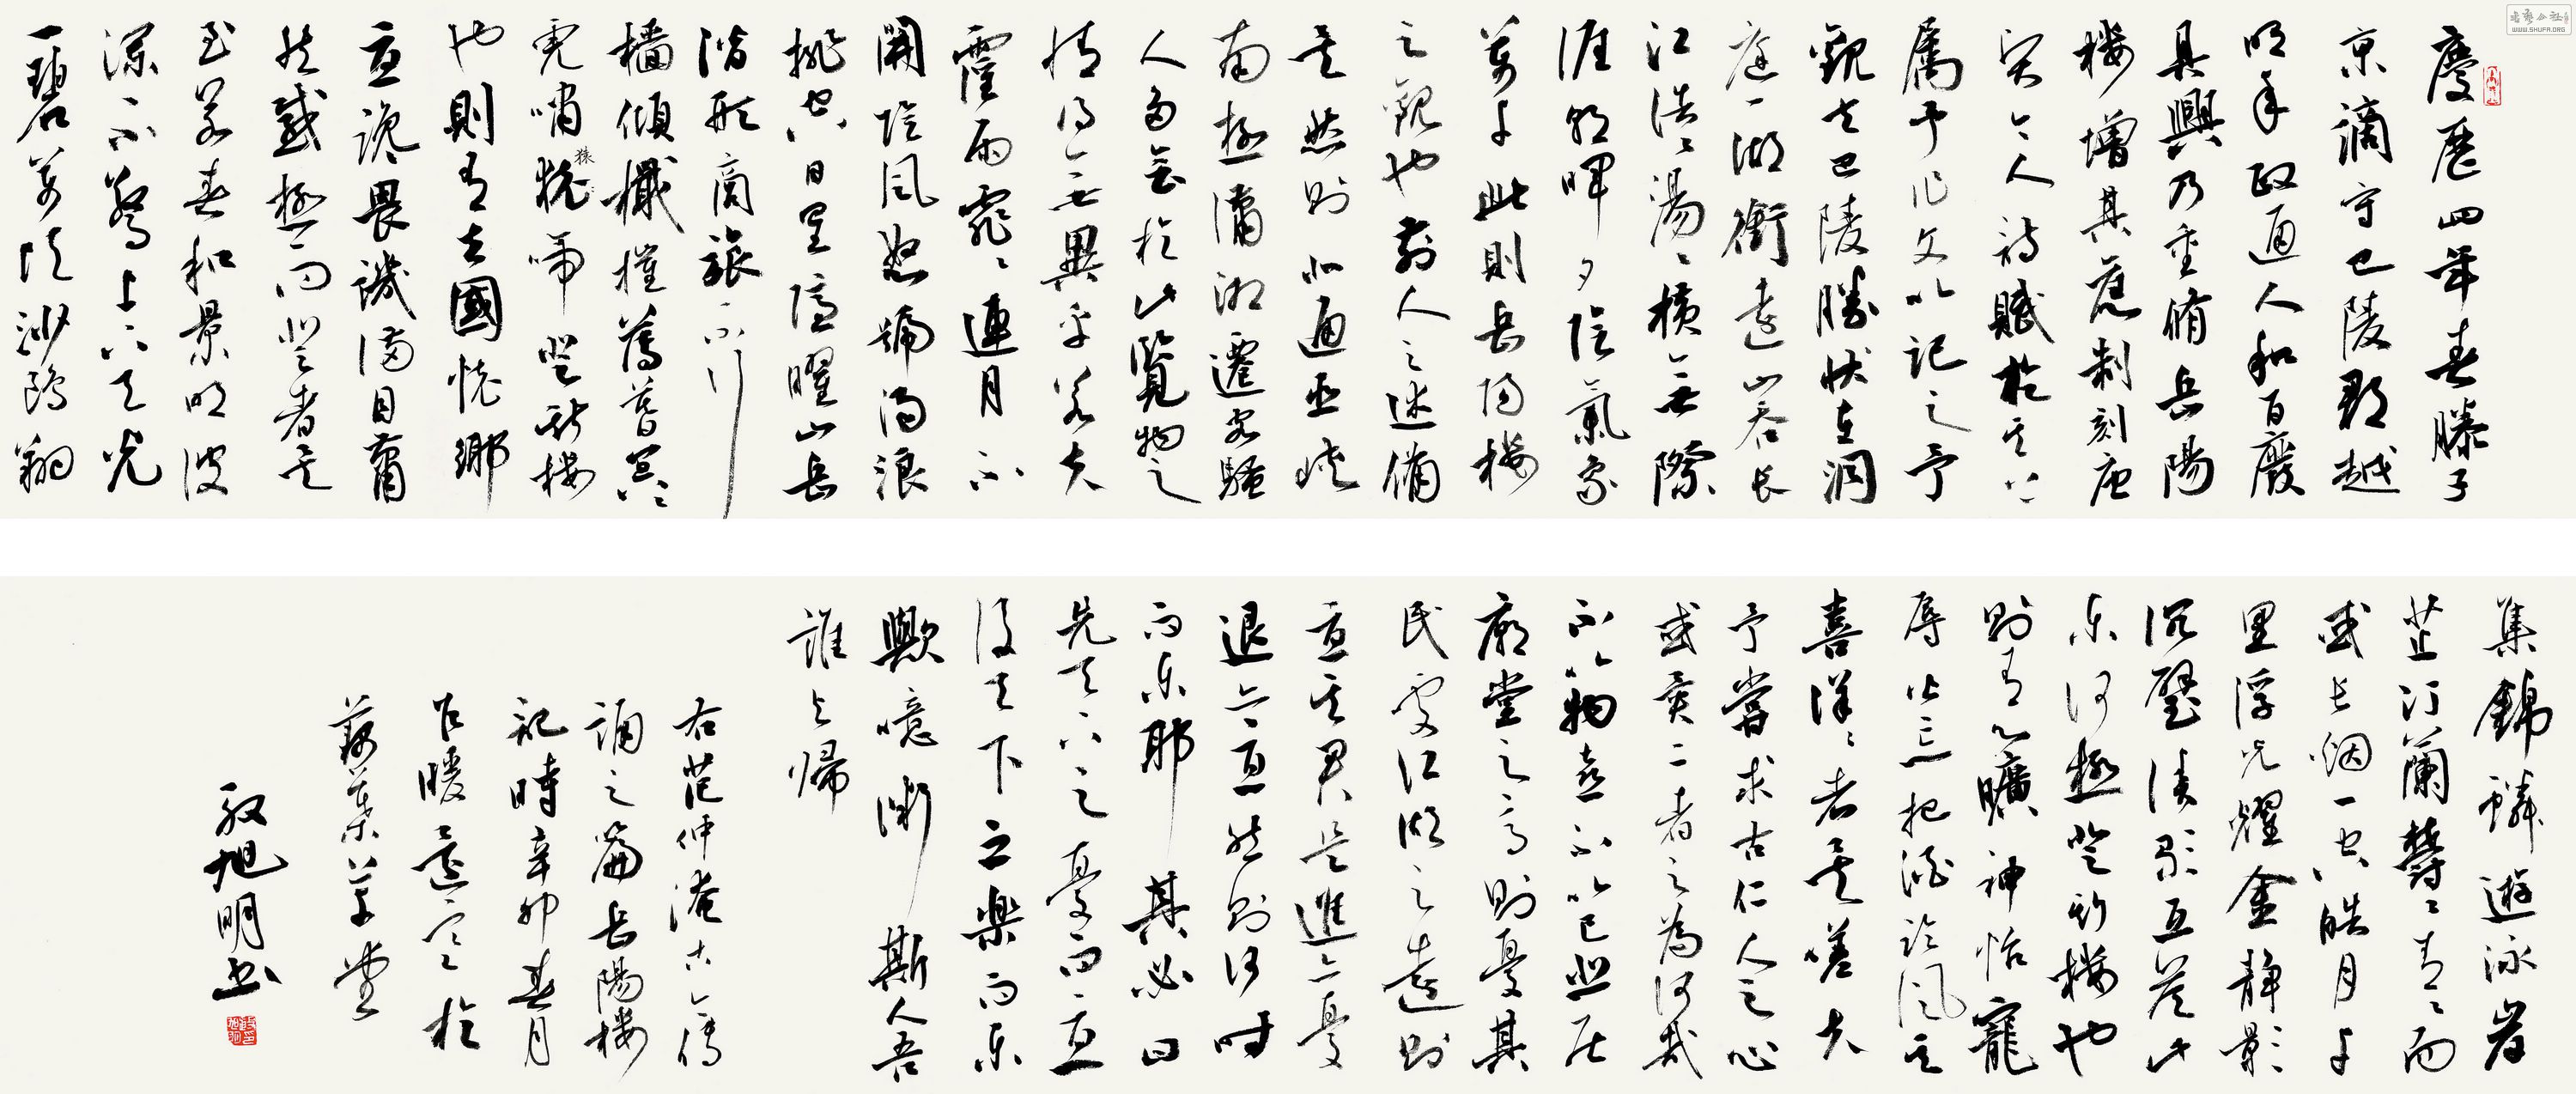 慶歷四年春滕子
京謫守巴陵郡越
明年政通人和百廢
具興乃重脩岳陽
樓增其舊制刻唐
賢今人詩賦於其上
屬予作文以記之予
觀夫巴陵勝狀在洞
庭一湖銜遠山吞長
江浩浩湯湯橫無際
涯朝暉夕陰氣象
萬千此則岳陽樓
之觀也前人之述備
矣然則北通巫峽
南極瀟湘遷客騷
人多會於此覽物之
情得無異乎若夫
霪雨霏霏連月不
開陰風怒號濁浪
排空日星隱曜山岳
潛形商旅不行
檣傾檝摧薄暮冥冥
虎嘯猿啼登斯樓
也則有去國懷鄉
憂讒畏譏滿目蕭
然感極而悲者矣
至若春和景明波
瀾不驚上下天光
一碧萬頃沙鷗翔
集錦鱗遊泳岸
芷汀蘭鬱鬱青青而
或長烟一空皓月千
里浮光耀金靜影
沉璧漁歌互答此
樂何極登斯樓也
則有心曠神怡寵
辱偕忘把酒臨風其
喜洋洋者矣嗟夫
予嘗求古仁人之心
或異二者之為何哉
不以物喜不以己悲居
廟堂之高則憂其
民處江湖之遠則
憂其君是進亦憂
退亦憂然則何時
而樂耶其必曰
先天下之憂而憂
後天下之樂而樂
歟噫微斯人吾
誰與歸
右范仲淹古今傳
誦之篇岳陽樓
記時辛卯春月
乍暖還寒於
草堂
殷旭明書
WWW.SHUFA.ORG